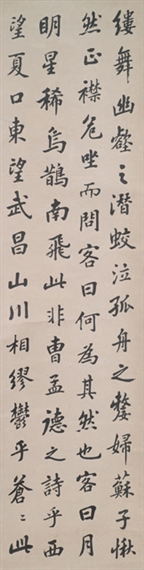 縷舞幽壑之潛蛟泣孤舟之嫠婦蘇子愀
然正襟危坐而問客曰何為其然也客曰月
明星稀烏鵲南飛此非曹孟德之詩乎西
望夏口東望武昌山川相繆鬱乎蒼〻此